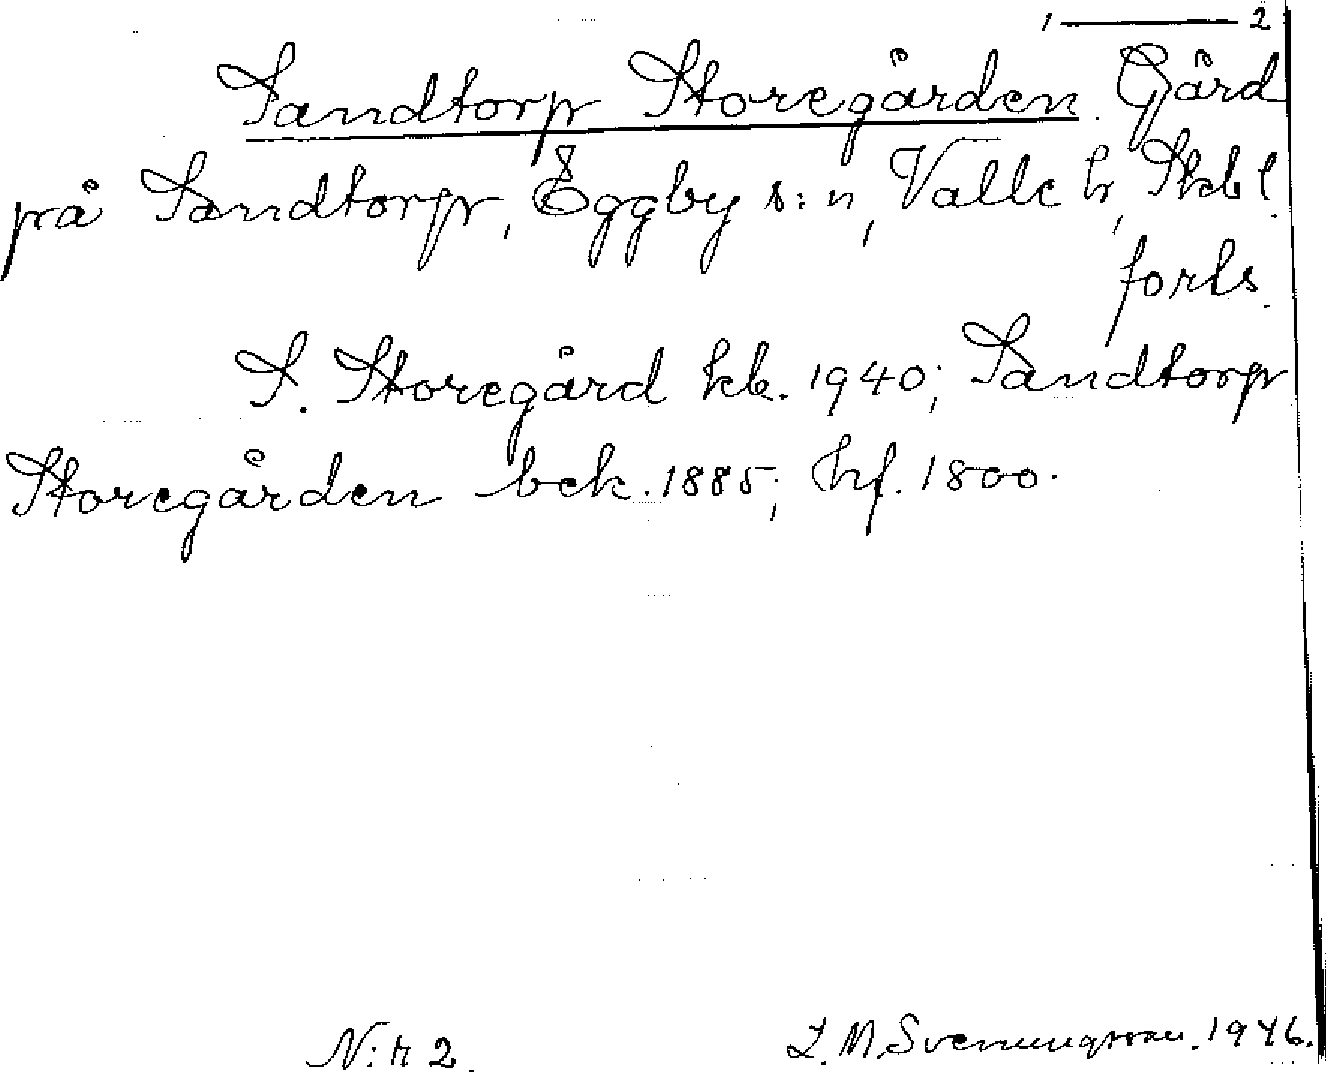 1 ——— 2
Sandtorp Storegården. Gård
på Sandtorp, Eggby s:n, Valle h, Skbl.
forts.
S. Storegård kb. 1940; Sandtorp
Storegården bek. 1885; hf. 1800.
N:r 2. L. M. Svenungsson. 1946.